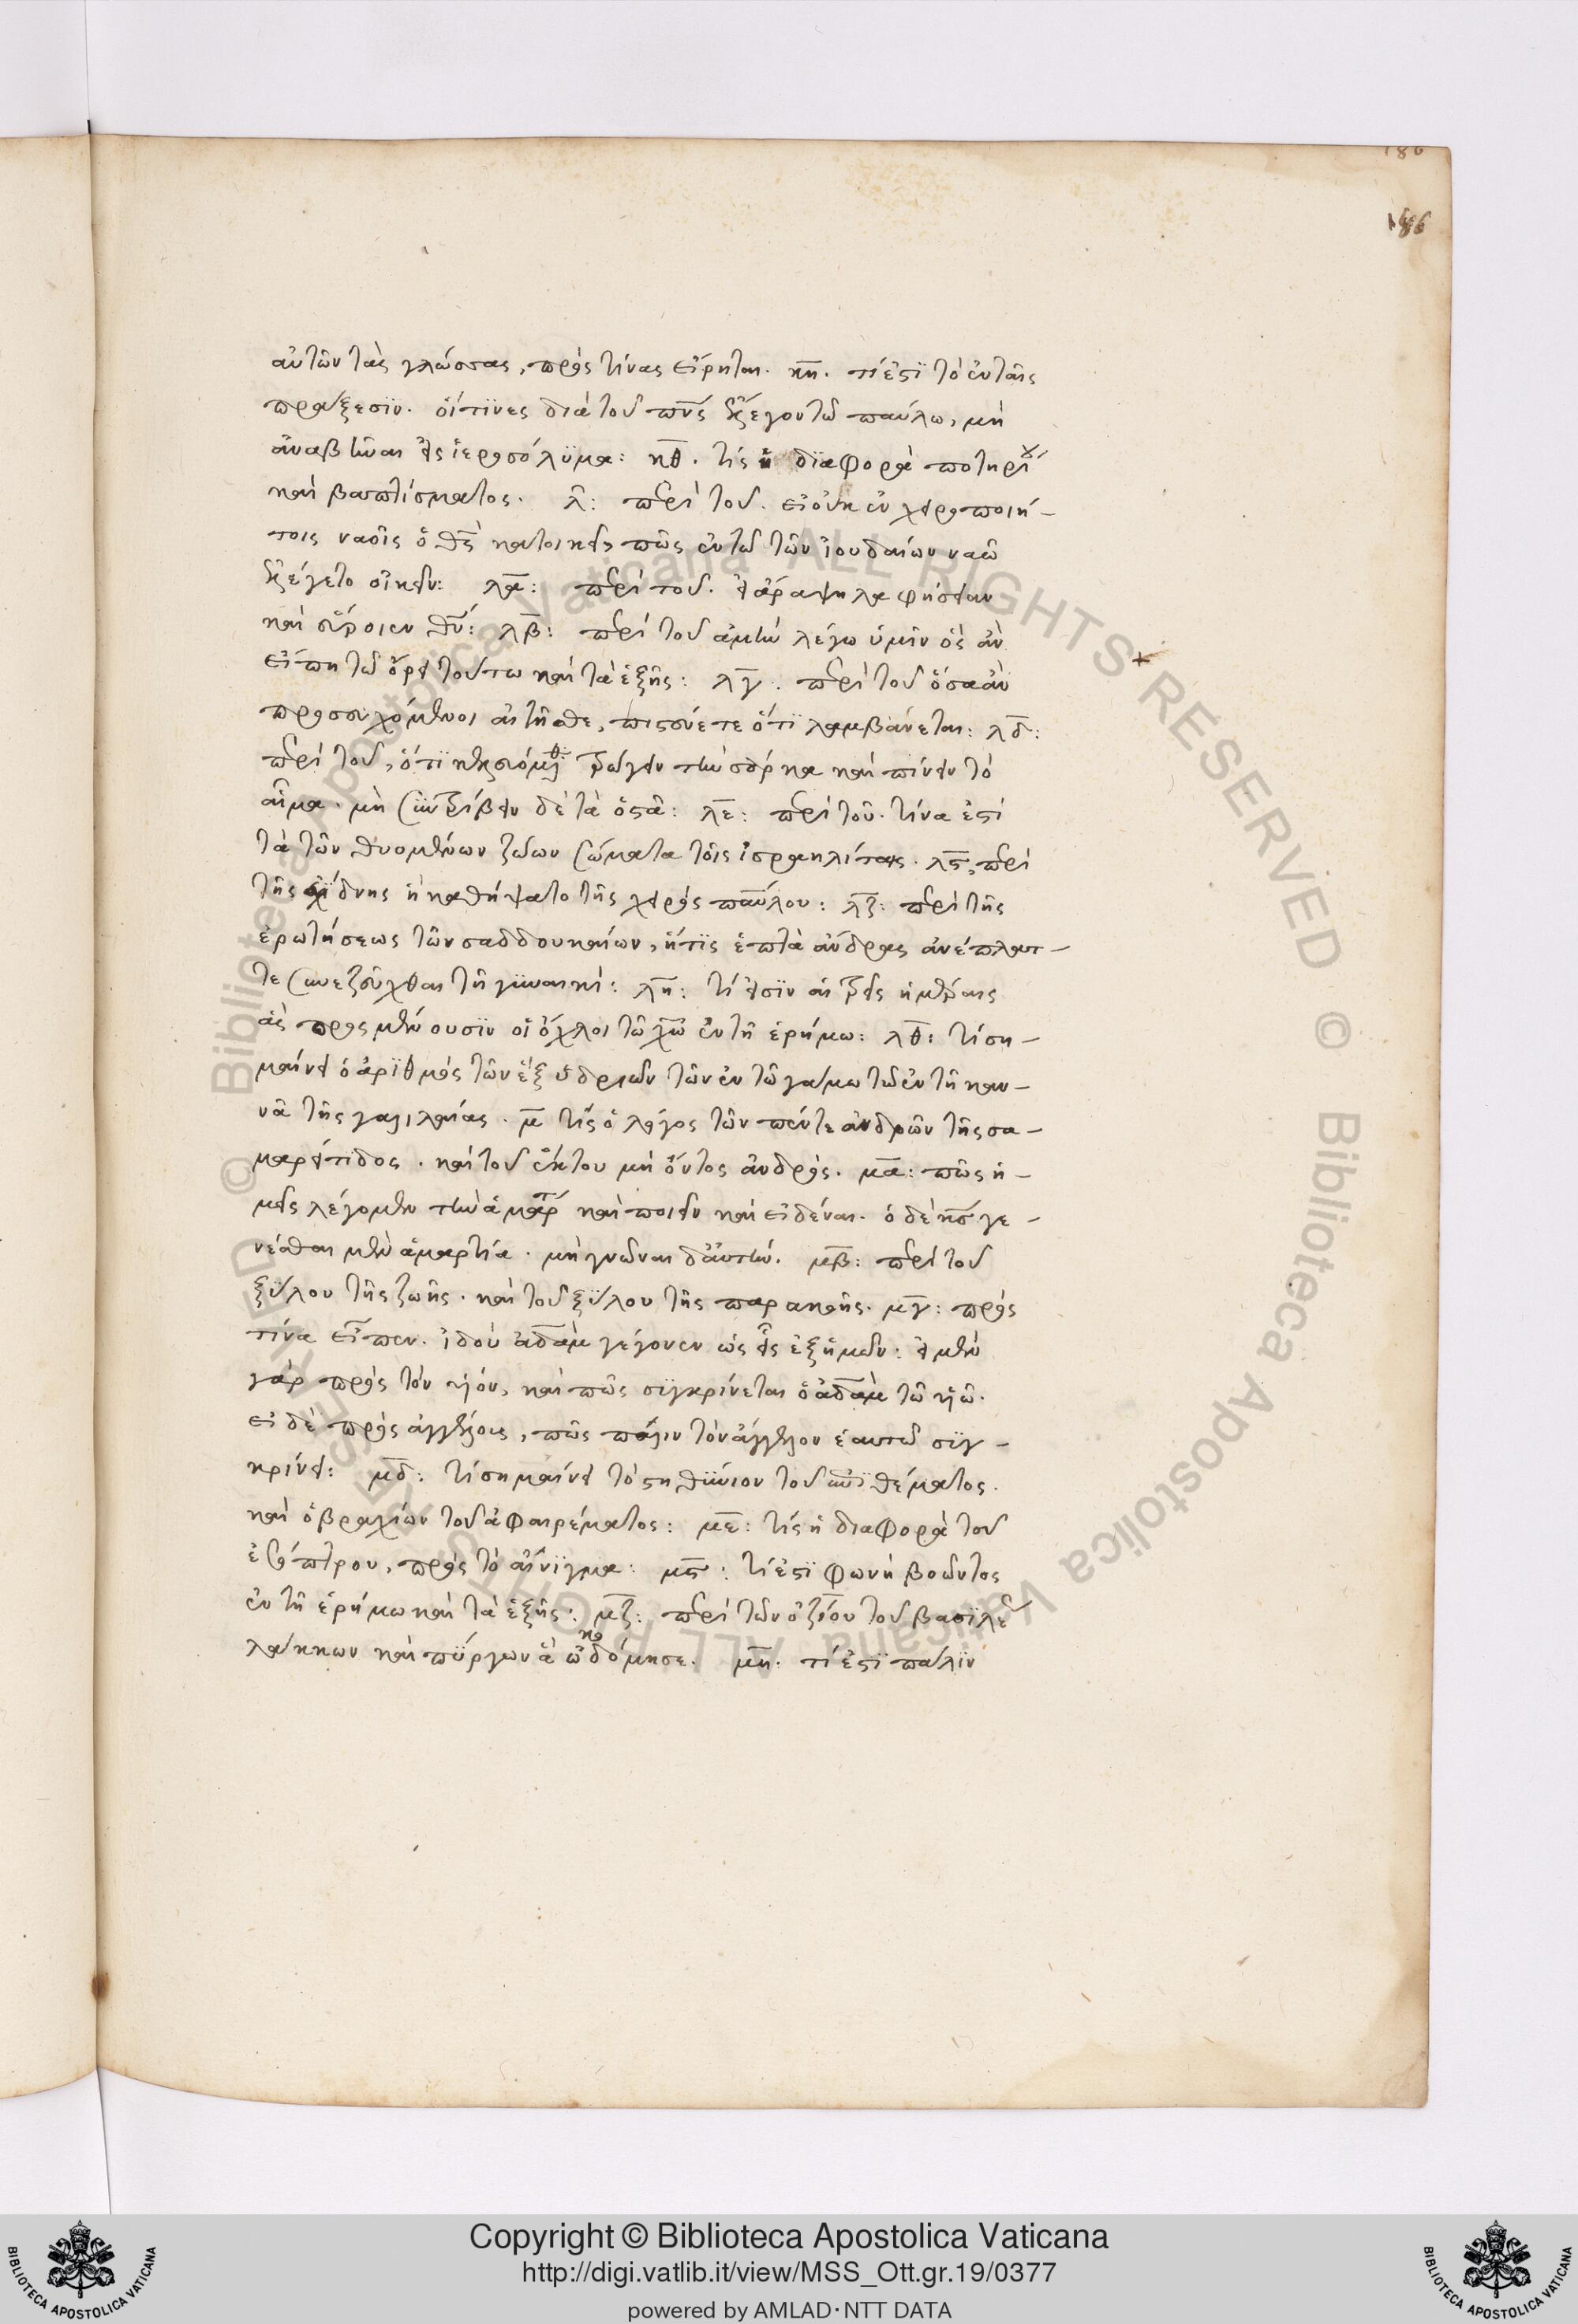 186
186
αὐτῶν τὰς γλώσσας, πρὸς τίνας εἴρηται. κη. τί ἐστϊ τὸ ἐν ταῖς
πράξεσϊν. οἵτϊνες διὰ τοῦ πνς ἔλεγον τῶ παύλω, μὴ
ἀναβῆναι εἰς ἱεροσόλϋμα: κθ. τίς ἡ δϊαφορὰ ποτηρί
καὶ βαπτίσματος. λ: περὶ τοῦ. εἰ οὐκ ἐν χειροποιή-
τοις ναοῖς ὁ θς κατοικεῖ, πῶς ἐν τῶ τῶν ἰουδαίων ναῶ
ἐλέγετο οἰκεῖν: λα: περὶ τοῦ. εἰ ἄρα ψηλαφήσειαν
καὶ εὕροιεν θν: λβ: περὶ τοῦ ἀμὴν λέγω ὑμῖν ὃς ἂν
εἴπη τῶ ὄρει τούτω καὶ τὰ ἑξῆς: λγ. περὶ τοῦ ὅσα ἂν
προσευχόμενοι αἰτῆσθε, πιστεύετε ὅτϊ λαμβάνεται: λδ:
περὶ τοῦ, ὅτϊ τρώγειν τὴν σάρκα καὶ πίνειν τὸ
αἷμα. μὴ σϋντρίβειν δὲ τὰ ὀστᾶ: λε: περὶ τοῦ. τίνα ἐστὶ
τὰ τῶν θυομένων ζώων σώματα τοῖς ἰσραηλίταις. λς, περὶ
τῆς ἐχίδνης ἣ καθήψατο τῆς χειρὸς παύλου: λζ: περὶ τῆς
ἐρωτήσεως τῶν σαδδουκαίων, ἥτϊς ἑπτὰ ἄνδρας ἀνέπλατ-
τε συνεζεῦχθαι τῆ γϋναικί: λη: τί εἰσϊν αἱ τρεῖς ἡμέραις
ἃς προσμένουσϊν οἱ ὄχλοι τῶ χω ἐν τῆ ἐρήμω: λθ: τί ση-
μαίνει ὁ ἀρϊθμὸς τῶν ἓξ ὑδριῶν τῶν ἐν τῶ γάμω τῶ ἐν τῆ κα-
νᾶ τῆς γαλιλαίας. μ τίς ὁ λόγος τῶν πέντε ἀνδρῶν τῆς σα-
μαρείτιδος. καὶ τοῦ ἕκτου μὴ ὄντος ἀνδρός. μα: πῶς ἡ-
μεῖς λέγομεν τὴν ἁμαρτ καὶ ποιεῖν καὶ εἰδέναι. ὁ δὲ κς γε-
νέσθαι μὲν ἁμαρτία. μὴ γνῶναι δ' αὐτήν. μβ: περὶ τοῦ
ξύλου τῆς ζωῆς. καὶ τοῦ ξύλου τῆς παρακοῆς. μγ: πρὸς
τίνα εἶπεν. ἰδοὺ ἀδὰμ γέγονεν ὡς εἷς ἐξ ἡμῶν: εἰ μὲν
γὰρ πρὸς τὸν υἱόν, καὶ πῶς σϋγκρίνεται ὁ ἀδὰμ τῶ υἱῶ.
εἰ δὲ πρὸς ἀγγέλους, πῶς πάλιν τὸν ἄγγελον ἑαυτῶ σϋγ-
κρίνει: μδ: τί σημαίνει τὸ στηθϋνιον τοῦ ἐπιθέματος.
καὶ ὁ βραχίων τοῦ ἀφαιρέματος: με: τίς ἡ διαφορὰ τοῦ
ἐσόπτρου, πρὸς τὸ αἴνϊγμα: μς: τί ἐστϊ φωνὴ βοῶντος
ἐν τῆ ἐρήμω καὶ τὰ ἑξῆς: μζ: περὶ τῶν ὀζίου τοῦ βασϊλε
λάκκων καὶ πϋργων ἃ ὠκοδόμησε. μη. τί ἐστϊ πάλϊν
Copyright © Biblioteca Apostolica Vaticana
http://digi.vatlib.it/view/MSS_Ott.gr.19/0377
powered by AMLAD·NTT DATA
BIBLIOTECA APOSTOLICA VATICANA
BIBLIOTECA APOSTOLICA VATICANA
© Biblioteca Apostolica Vaticana ALL RIGHTS RESERVED © Biblioteca Apostolica Vaticana ALL RIGHTS RESERVED